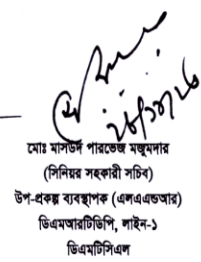 মোঃ মাসউদ পারভেজ মজুমদার
(সিনিয়র সহকারী সচিব)
উপ-প্রকল্প ব্যবস্থাপক (এলএএন্ডআর)
ডিএমআরটিডিপি, লাইন-১
ডিএমটিসিএল